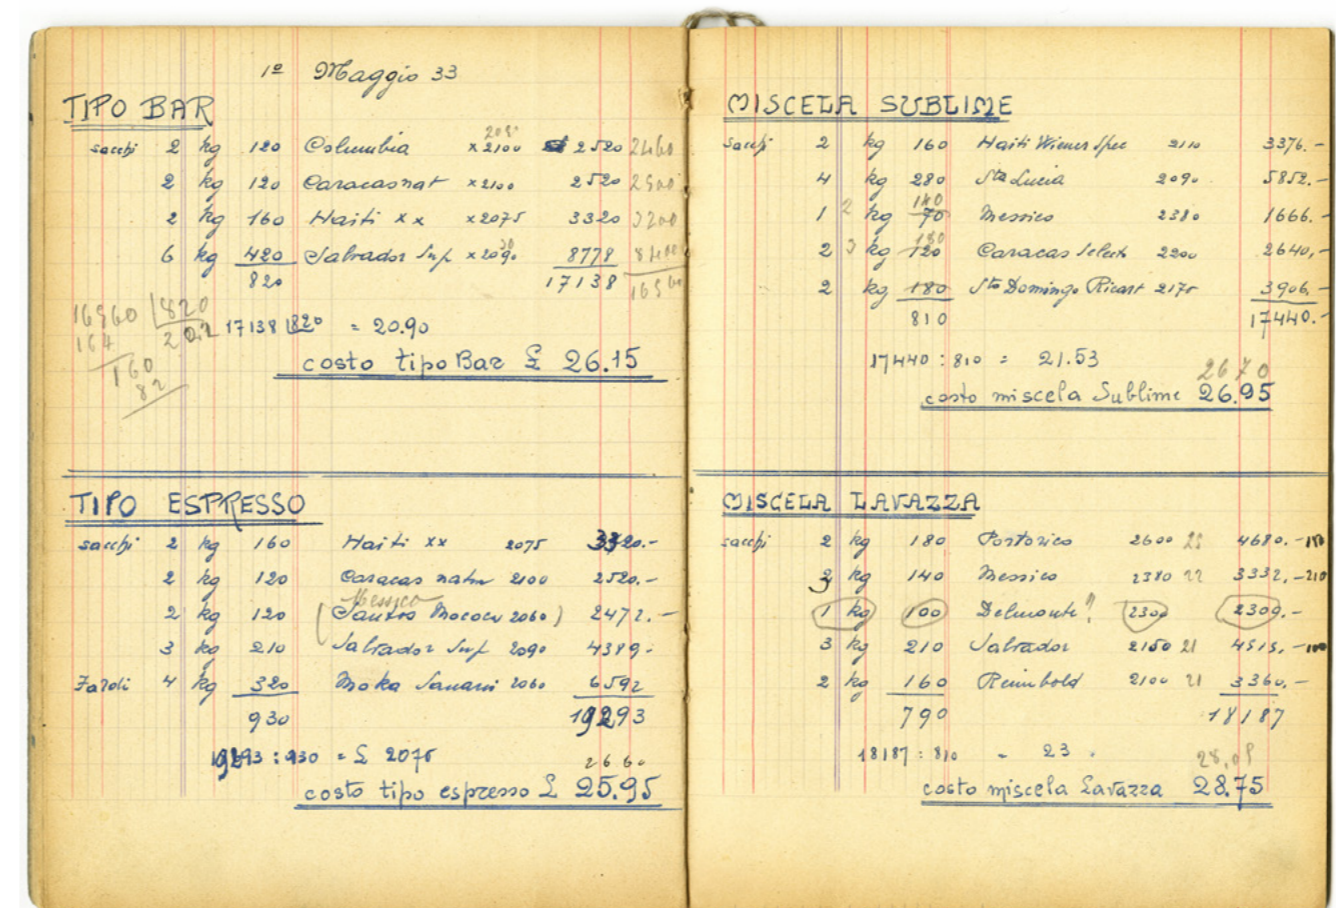 1º Maggio 33
TIPO BAR
sacchi 2 kg 120 Columbia x 2100 2520 2460
2 kg 120 Caracas nat x 2100 2520 2500
2 kg 160 Haiti xx x 2075 3320 3200
6 kg 420 Salvador Sup x 2090 8778
820 17138
16960 820
164
160
82
17138 820 = 20.90
costo tipo Bar £ 26.15
TIPO ESPRESSO
sacchi 2 kg 160 Haiti xx 2075 3320.-
2 kg 120 Caracas natur 2100 2520.-
Messico
2 kg 120 (Santos Mococa 2060) 2472.-
3 kg 210 Salvador Sup 2090 4389.-
Fardi 4 kg 320 Moka Sanani 2060 6592
930 19293
19293 : 930 = £ 2075
2660
costo tipo espresso £ 25.95
MISCELA SUBLIME
sacchi 2 kg 160 Haiti Wiener Spec 2110 3376.-
4 kg 280 Sta Lucia 2090 5852.-
140
1 2 kg 70 Messico 2380 1666.-
180
2 3 kg 120 Caracas Select 2200 2640,-
2 kg 180 Sto Domingo Ricart 2170 3906.-
810 17440.-
17440 : 810 = 21.53
2670
costo miscela Sublime 26.95
MISCELA LAVAZZA
sacchi 2 kg 180 Portorico 2600 4680.-
3 kg 140 Messico 2380 22 3332.- 210
1 kg 100 Delmonte? 2300 2300.-
3 kg 210 Salvador 2150 21 4515.- 100
2 kg 160 Reimbold 2100 21 3360.-
790 18187
18187 : 810 = 23.
costo miscela Lavazza 28.75